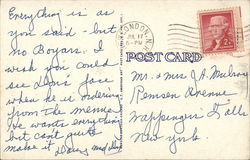 Everything is as
you said - but
no Boyars. I
wish you could
see Don's face
when he is ordering
from the menu.
He wants everything
but can't quite
make it.
JUL 11
5-PM
2¢
POST CARD
Mr. & Mrs J. A. Mulroy
Remsen Avenue
Wappingers Falls
New York.